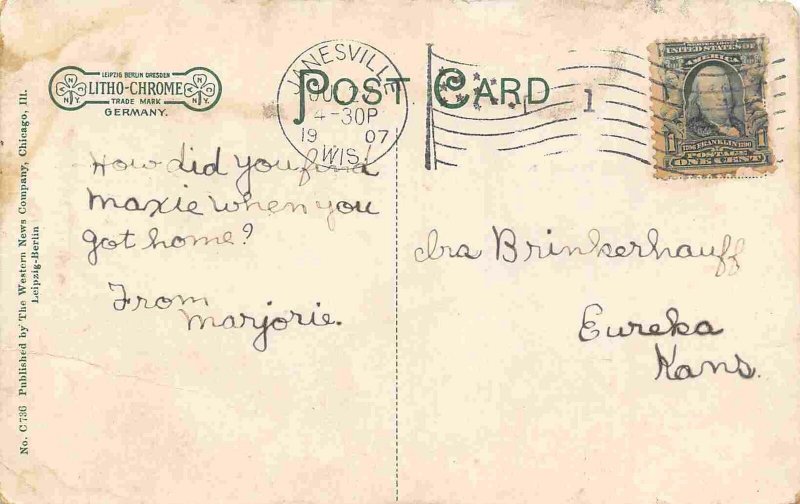 LEIPZIG BERLIN DRESDEN
LITHO-CHROME
TRADE MARK
GERMANY.
N N Y
N N Y
POST CARD
JANESVILLE
4-30P
19 07
WIS.
1
UNITED STATES OF
AMERICA
1706 FRANKLIN 1790
POSTAGE
1 ONE CENT 1
How did you find
Maxie when you
got home?
From
Marjorie.
Ira Brinkerhauff
Eureka
Kans.
No. C 736 Published by The Western News Company, Chicago, Ill.
Leipzig-Berlin